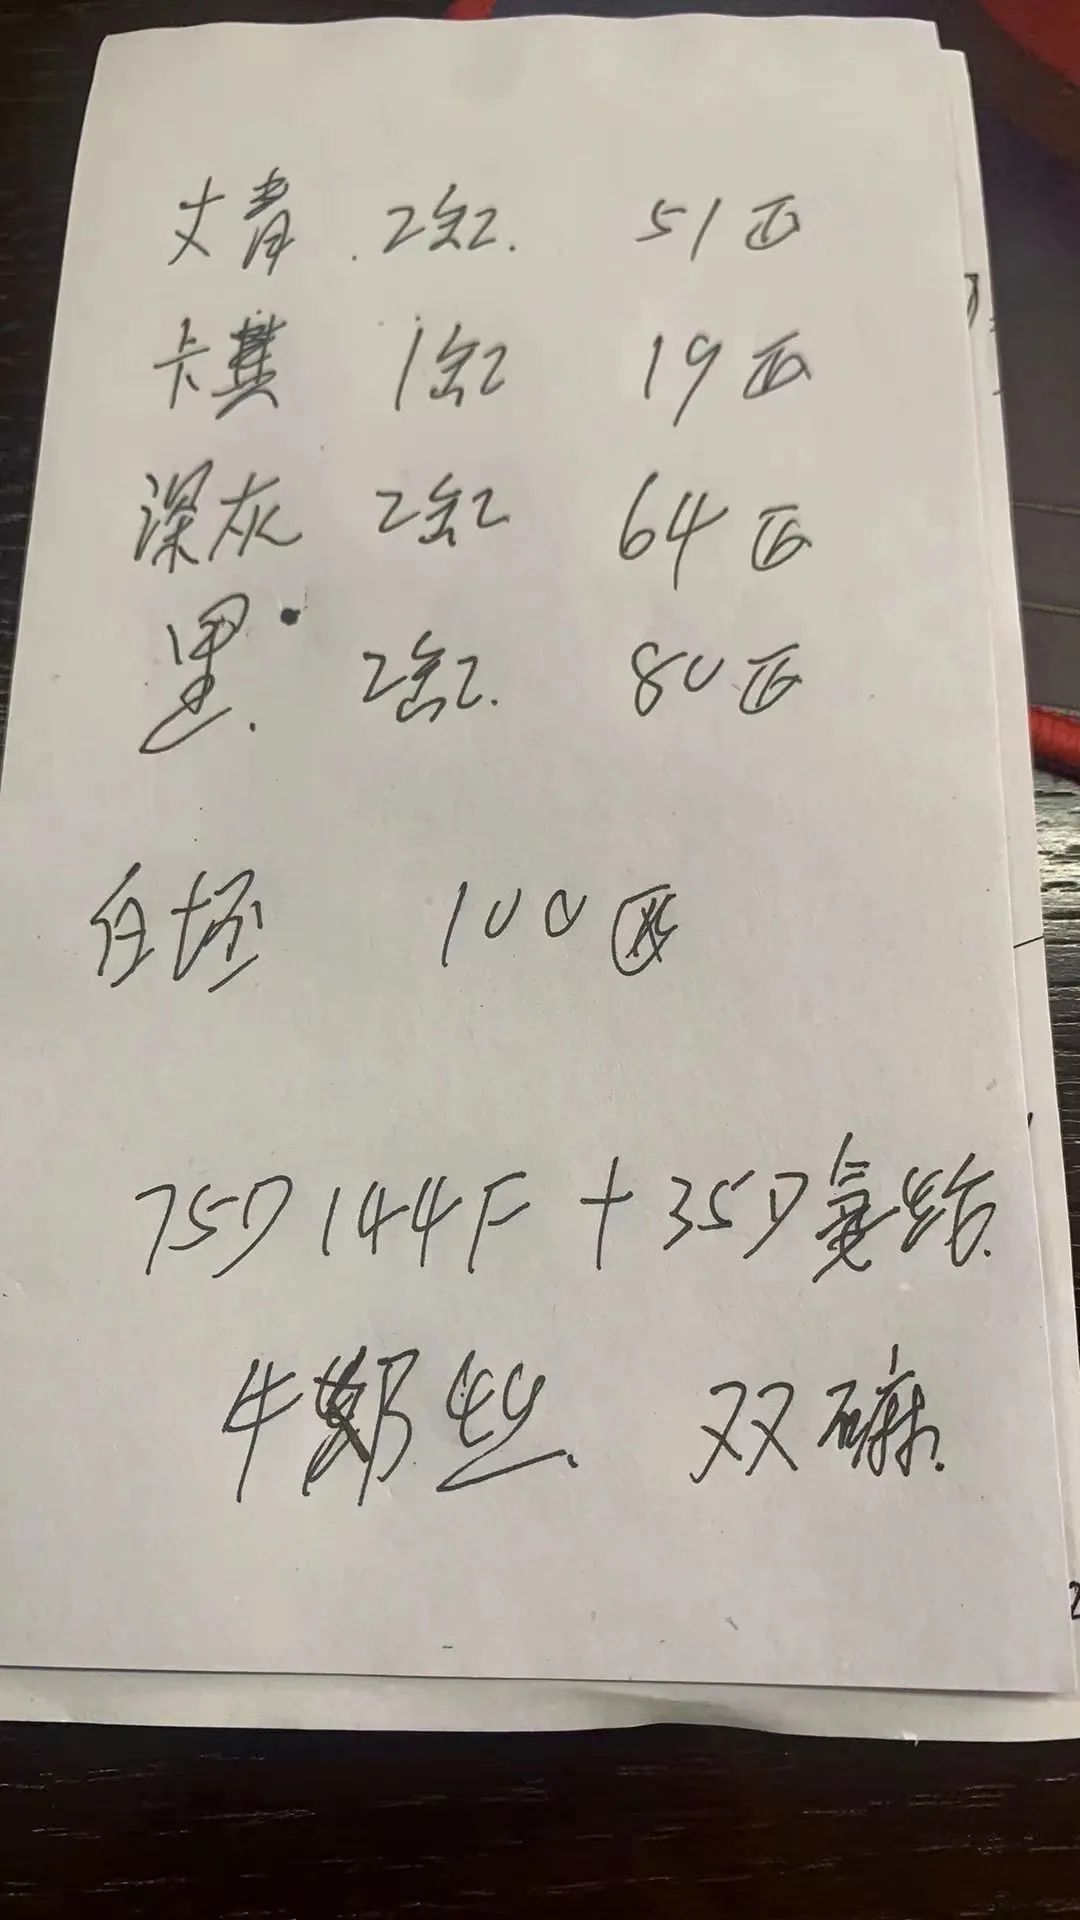 丈青 2缸 51匹
卡其 1缸 19匹
深灰 2缸 64匹
黑 2缸 80匹
白坯 100匹
75D144F+35D氨纶
牛奶丝 双磨